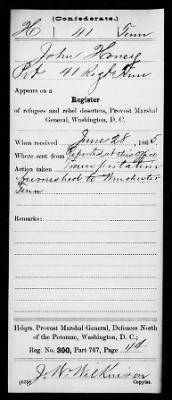 (Confederate.)
H 41 Tenn
John Haney
Pvt 41 Regt Tenn
Appears on a
Register
of refugees and rebel deserters, Provost Marshal
General, Washington, D. C.
When received June 28, 1865.
Where sent from Reported at this Office
Action taken Transportation
furnished to Winchester
Tenn
Remarks:
Hdqrs. Provost Marshal General, Defences North
of the Potomac, Washington, D. C.;
Reg. No. 300, Part 767, Page 44
J. W. Wilkinson
Copyist.